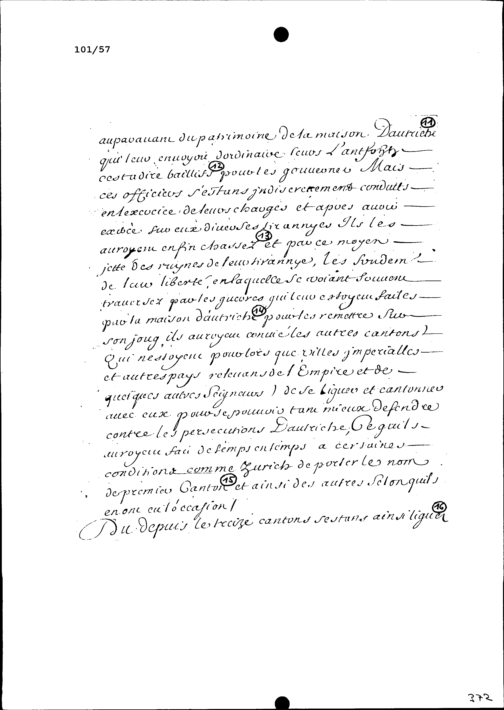 101/57
(11)
auparauant du patrimoine de la maison Dautriche
qui leur enuoyoit dordinaire leurs Lantfogtz
cestadire baillifs (12) pour les gouuerner Mais
ces officiers s'estans indiscretement conduits
en lexercice de leurs charges et apres auoir
exercé sur eux diuerses tirannyes Ils les
auroyent enfin chassez (13) et par ce moyen
jetté des ruynes de leur tirannye, les fondem.ts
de leur liberté, en laquelle se voiant souuent
trauersez par les guerres qui leur estoyent faites
par la maison dautriche (14) pour les remettre sur
son joug, ils auroyent conuié les autres cantons (
Qui nestoyent pour lors que villes jmperialles
et autres pays releuans de l'Empire et de
quelques autres Seigneurs ) de se liguer et cantonner
auec eux pour se pouuoir tant mieux defendre
contre les persecutions Dautriche, Ce quils
auroyent fait de temps en temps a certaines
conditions comme Zurich de porter le nom
de premier Canton (15) et ainsi des autres selon quils
en ont eu l'occasion /
(16)
Du depuis le treize cantons s'estans ainsi liguez
372